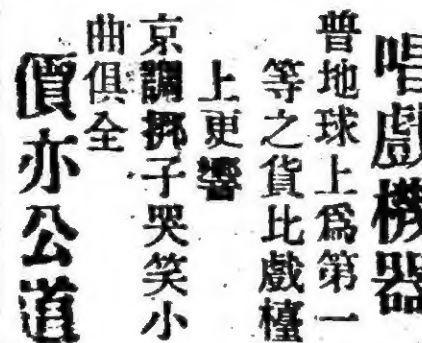 唱戲機器
普地球上爲第一
等之貨比戲檯
上更響
京調梆子哭笑小
曲俱全
價亦公道